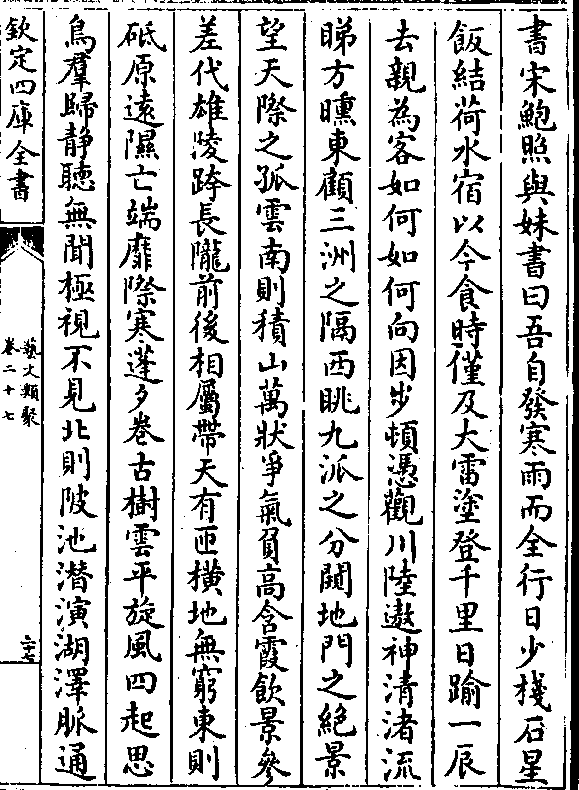 書宋鮑照與妹書曰吾自發寒雨而全行日少棧石星
飯結荷水宿以今食時僅及大雷塗登千里日踰一辰
去親為客如何如何向因步頓憑觀川陸遨神清渚流
睇方曛東顧三洲之隔西眺九派之分闚地門之絶景
望天際之孤雲南則積山萬狀爭氣負高含霞飲景參
差代雄淩跨長隴前後相屬帶天有匝橫地無窮東則
砥原遠隰亡端靡際寒蓬夕卷古樹雲平旋風四起思
鳥羣歸静聽無聞極視不見北則陂池潛演湖澤脈通
欽定四庫全書
藝文類聚
卷二十七
三七